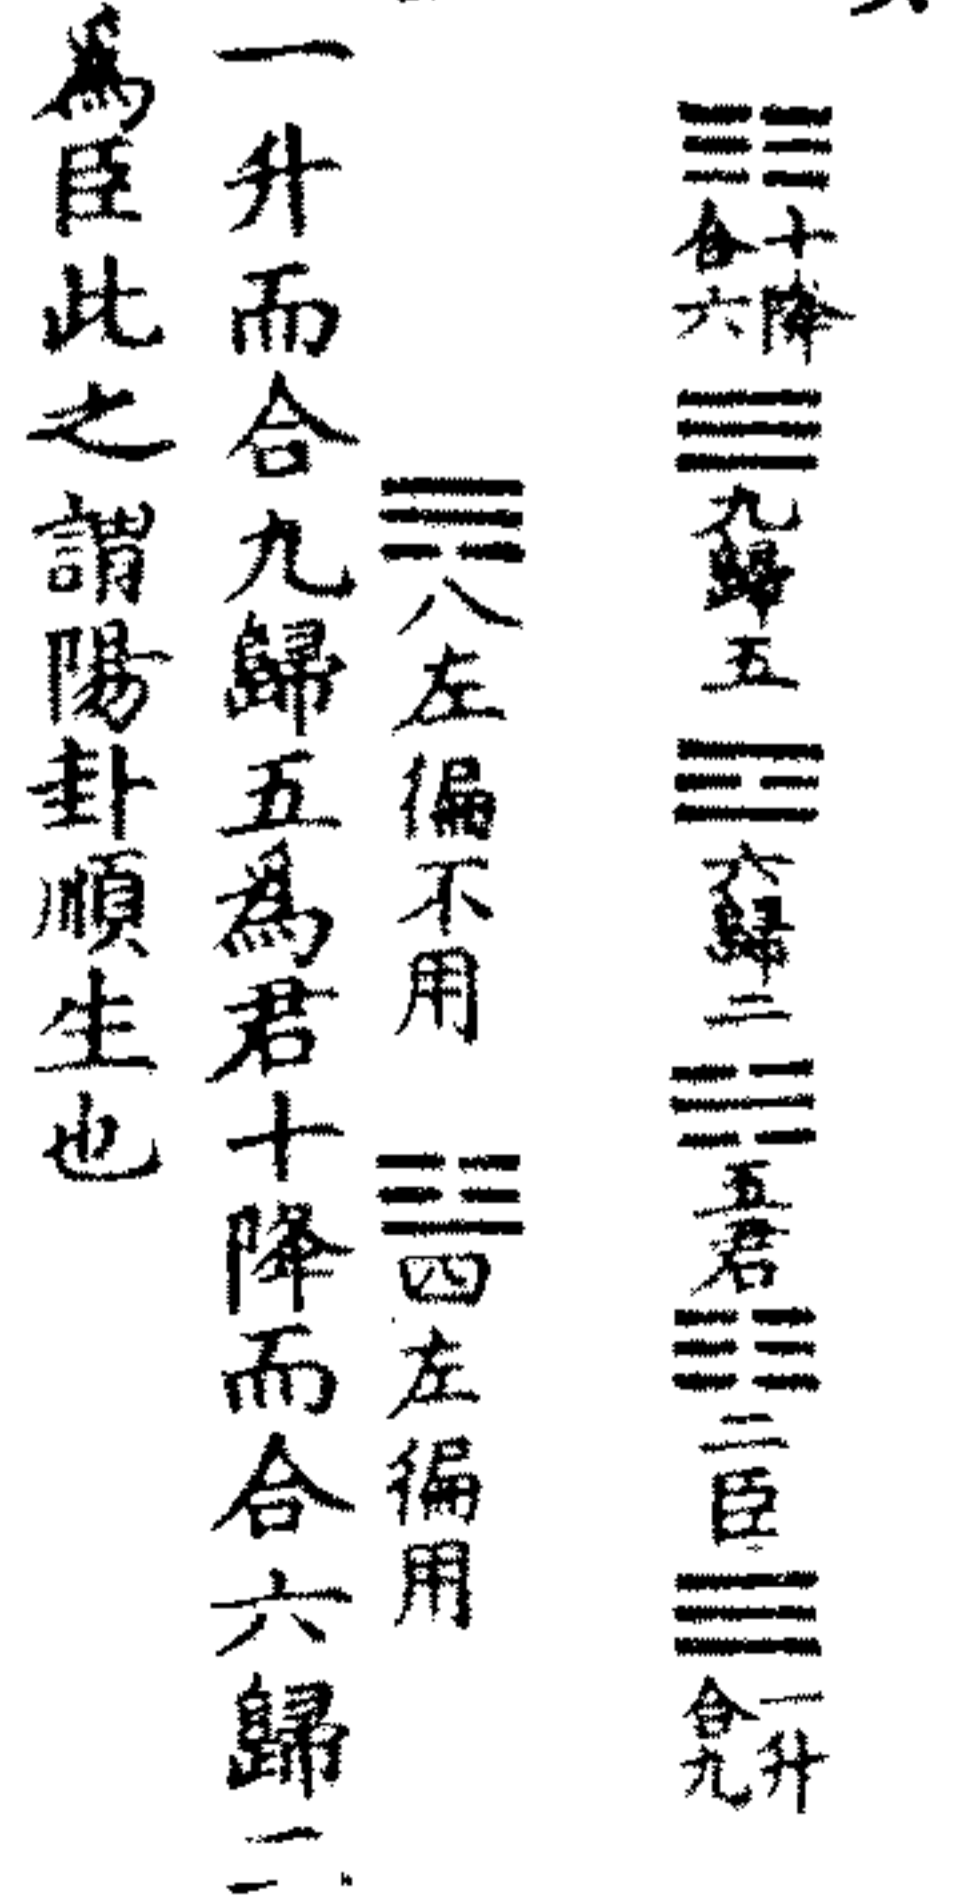 ☷十降合六
☰九歸五
☲六歸二
☵五君
☷二臣
☰一升合九
☴八左偏不用
☳四左偏用
一升而合九歸五為君十降而合六歸二
為臣此之謂陽卦順生也